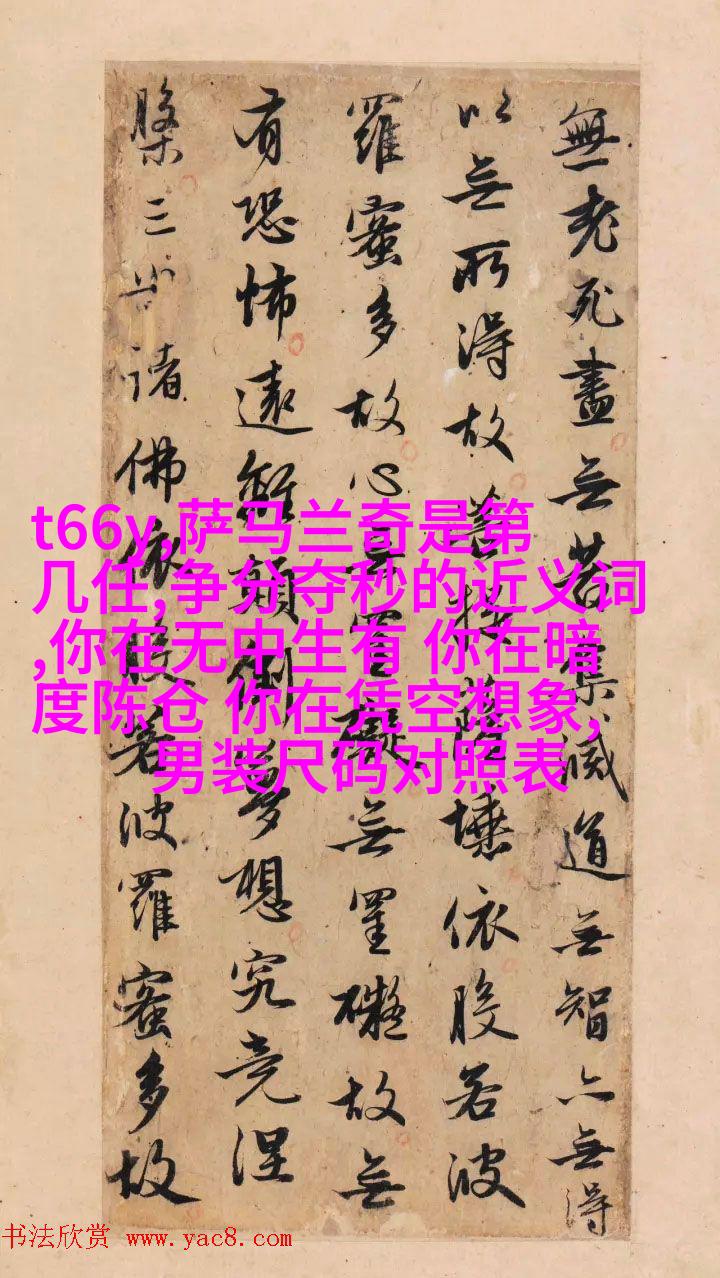 無老死盡无苦集滅道无智亦无得
以无所得故菩提薩埵依般若波
羅蜜多故心无罣礙无罣礙故无
有恐怖遠離顛倒夢想究竟涅
槃三世諸佛依般若波羅蜜多故
t66y,萨马兰奇是第
几任,争分夺秒的近义词
,你在无中生有 你在暗
度陈仓 你在凭空想象,
男装尺码对照表
书法欣赏 www.yac8.com